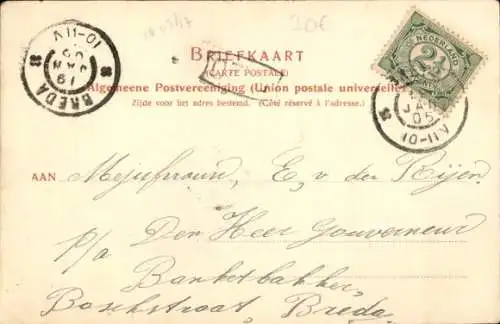 10 E
10-11V
19 JAN 05
BREDA
BRIEFKAART
(CARTE POSTALE)
Algemeene Postvereeniging (Union postale universelle)
Zijde voor het adres bestemd. (Côté réservé à l'adresse.)
NEDERLAND
2½
JAN
05
10-11V
AAN Mejufrouw, E, v der Rijen,
p/a Den Heer Gouverneur
Banketbakker,
Boschstraat, Breda,